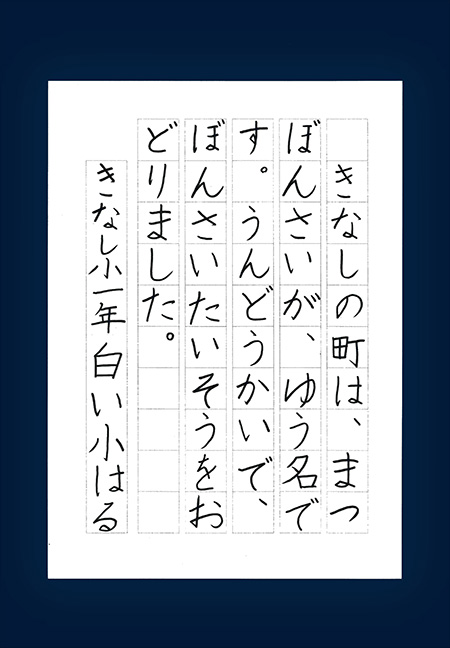 きなしの町は、まつ
ぼんさいが、ゆう名で
す。うんどうかいで、
ぼんさいたいそうをお
どりました。
きなし小一年白い小はる